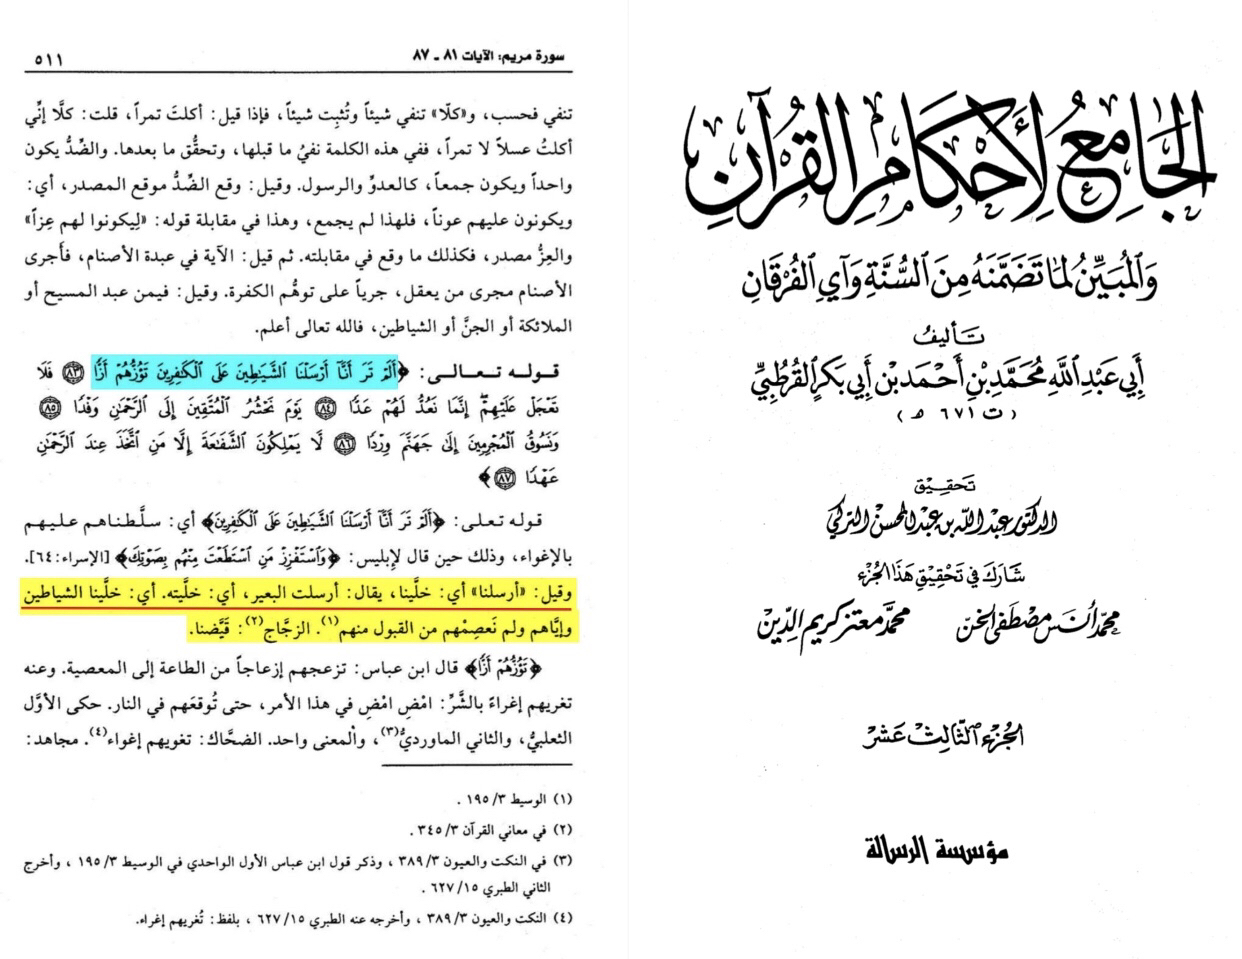 الجامع لأحكام القرآن
والمبين لما تضمنه من السنة وآي الفرقان
تأليف
أبي عبد الله محمد بن أحمد بن أبي بكر القرطبي
(ت ٦٧١ هـ)
تحقيق
الدكتور عبد الله بن عبد المحسن التركي
شارك في تحقيق هذا الجزء
محمد أنس مصطفى الخن محمد معتز كريم الدين
الجزء الثالث عشر
مؤسسة الرسالة
سورة مريم: الآيات ٨١ ـ ٨٧ ٥١١
تنفي فحسب، و«كلّا» تنفي شيئاً وتُثبِت شيئاً، فإذا قيل: أكلتَ تمراً، قلت: كلَّا إنِّي
أكلتُ عسلاً لا تمراً، ففي هذه الكلمة نفيُ ما قبلها، وتحقُّق ما بعدها. والضِّدُّ يكون
واحداً ويكون جمعاً، كالعدوِّ والرسول. وقيل: وقع الضِّدُّ موقع المصدر، أي:
ويكونون عليهم عوناً، فلهذا لم يجمع، وهذا في مقابلة قوله: «لِيكونوا لهم عِزاً»
والعِزُّ مصدر، فكذلك ما وقع في مقابلته. ثم قيل: الآية في عبدة الأصنام، فأَجرى
الأصنام مجرى من يعقل، جرياً على توهُّم الكفرة. وقيل: فيمن عبد المسيح أو
الملائكة أو الجنَّ أو الشياطين، فالله تعالى أعلم.
قوله تعالى: ﴿أَلَمْ تَرَ أَنَّا أَرْسَلْنَا الشَّيَاطِينَ عَلَى الْكَافِرِينَ تَؤُزُّهُمْ أَزًّا ٨٣ فَلَا
تَعْجَلْ عَلَيْهِمْ إِنَّمَا نَعُدُّ لَهُمْ عَدًّا ٨٤ يَوْمَ نَحْشُرُ الْمُتَّقِينَ إِلَى الرَّحْمَٰنِ وَفْدًا ٨٥
وَنَسُوقُ الْمُجْرِمِينَ إِلَىٰ جَهَنَّمَ وِرْدًا ٨٦ لَا يَمْلِكُونَ الشَّفَاعَةَ إِلَّا مَنِ اتَّخَذَ عِندَ الرَّحْمَٰنِ
عَهْدًا ٨٧﴾
قوله تعالى: ﴿أَلَمْ تَرَ أَنَّا أَرْسَلْنَا الشَّيَاطِينَ عَلَى الْكَافِرِينَ﴾ أي: سلَّطناهم عليهم
بالإغواء، وذلك حين قال لإبليس: ﴿وَاسْتَفْزِزْ مَنِ اسْتَطَعْتَ مِنْهُم بِصَوْتِكَ﴾ [الإسراء:٦٤].
وقيل: «أرسلنا» أي: خلَّينا، يقال: أرسلت البعير، أي: خلَّيته. أي: خلَّينا الشياطين
وإيَّاهم ولم نَعصِمْهم من القبول منهم(١). الزجَّاج(٢): قَيَّضنا.
﴿تَؤُزُّهُمْ أَزًّا﴾ قال ابن عباس: تزعجهم إزعاجاً من الطاعة إلى المعصية. وعنه
تغريهم إغراءً بالشَّرِّ: امْضِ امْضِ في هذا الأمر، حتى تُوقعَهم في النار. حكى الأوَّل
الثعلبيُّ، والثاني الماورديُّ(٣)، والمعنى واحد. الضحَّاك: تغويهم إغواء(٤). مجاهد:
(١) الوسيط ٣/ ١٩٥ .
(٢) في معاني القرآن ٣/ ٣٤٥ .
(٣) في النكت والعيون ٣/ ٣٨٩ ، وذكر قول ابن عباس الأول الواحدي في الوسيط ٣/ ١٩٥ ، وأخرج
الثاني الطبري ١٥/ ٦٢٧ .
(٤) النكت والعيون ٣/ ٣٨٩ ، وأخرجه عنه الطبري ١٥/ ٦٢٧ ، بلفظ: تُغريهم إغراء.